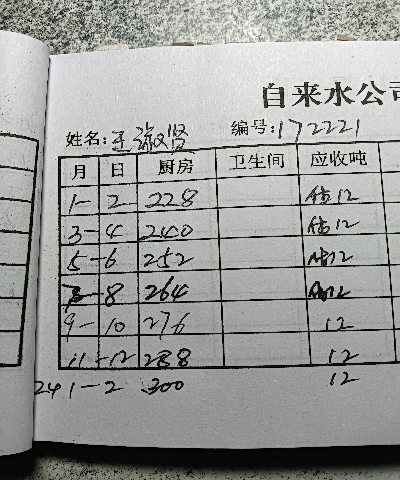 自来水公司
姓名: 王淑贤 编号: 172221
月 日 厨房 卫生间 应收吨
1- 2 228 估12
3- 4 240 估12
5- 6 252 估12
7- 8 264 估12
9- 10 276 12
11- 12 288 12
24 1- 2 300 12